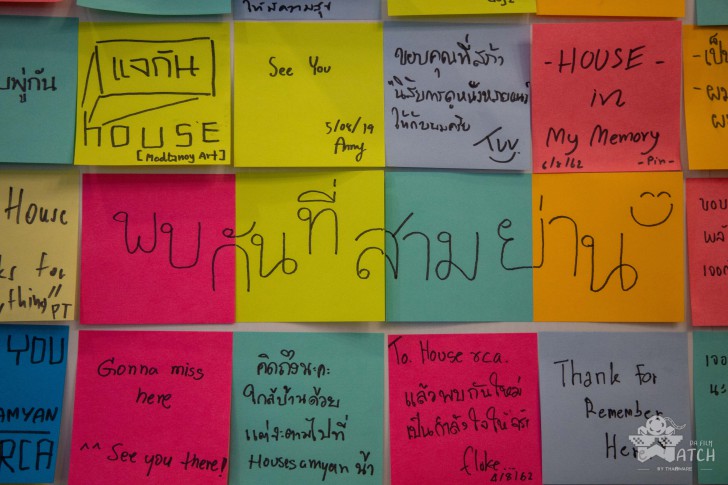 ให้มีความสุข
แจกัน
HOUSE
[Modtanoy Art]
See You
5/08/19
Army
ขอบคุณที่สร้าง
ให้กับผมครับ
- HOUSE -
in
My Memory
6/8/62
-Pin-
- เป็
House
for
thing"
PT
พบกันที่สามย่าน
YOU
AMYAN
RCA
Gonna miss
here
^^ See you there!
คิดถึงนะคะ
ใกล้บ้านด้วย
แต่จะตามไปที่
House samyan น้า
To. House rca.
แล้วพบกันใหม่
เป็นกำลังใจให้
4/8/62
Thank for
Remember
Her
DA FILM
WATCH
BY THAIWARE